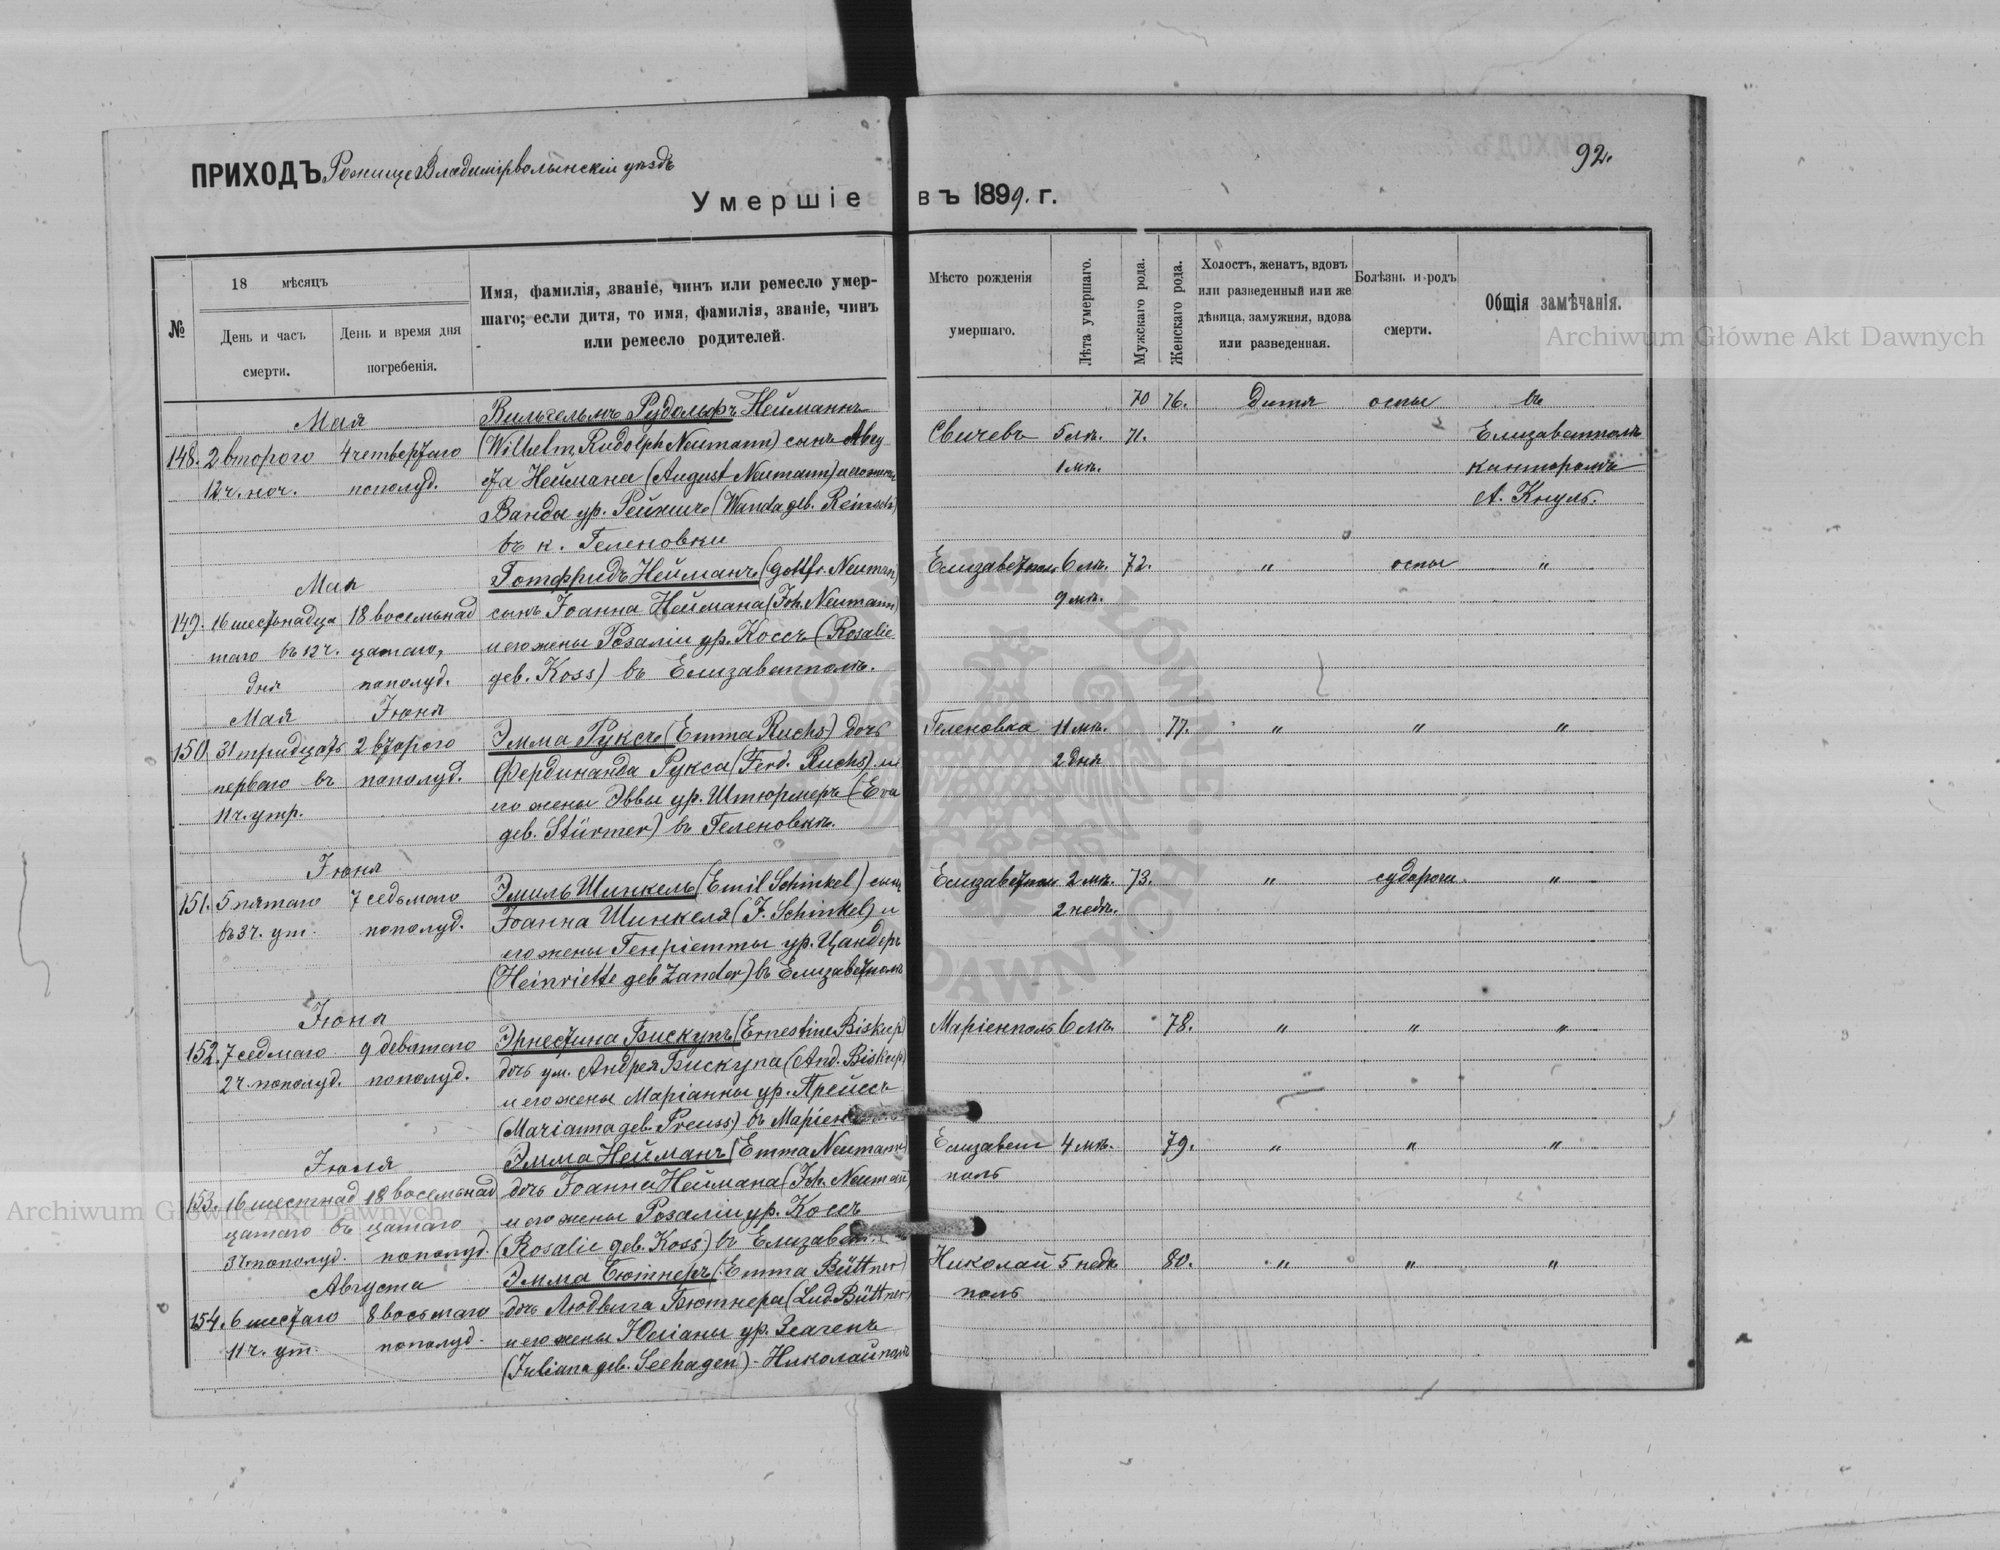 ПРИХОДЪ Рожище Владимірволынскій уѣздъ
92.
Умершіе въ 1899. г.
№
18 мѣсяцъ
День и часъ смерти.
День и время дня погребенія.
Имя, фамилія, званіе, чинъ или ремесло умер-
шаго; если дитя, то имя, фамилія, званіе, чинъ
или ремесло родителей.
Мѣсто рожденія умершаго.
Лѣта умершаго.
Мужскаго рода.
Женскаго рода.
Холостъ, женатъ, вдовъ
или разведенный или же
дѣвица, замужняя, вдова
или разведенная.
Болѣзнь и родъ смерти.
Общія замѣчанія.
Archiwum Główne Akt Dawnych
Мая Вильгельмъ Рудольфъ Нейманнъ 70 76. Дитя оспы въ
148. 2 второго 4 четвертаго (Wilhelm Rudolph Neumann) сынъ Авгу Свичевъ 5 лѣт. 71. Елизаветполѣ
12 ч. ноч. пополуд. ста Неймана (August Neumann) и его жены 1 мѣ. канторомъ
Ванды ур. Рейншъ (Wanda geb. Reinsch) А. Кнуль.
въ к. Геленовки
Мая Готфридъ Нейманъ (Gottfr. Neuman) Елизаветполь 6 лѣт. 72. " оспы "
149. 16 шестнадца 18 восемьнад сынъ Іоанна Неймана (Joh. Neumann) 9 мѣ.
таго въ 12 ч. цатаго, и его жены Розаліи ур. Коссъ (Rosalie
дня пополуд. geb. Koss) въ Елизаветполѣ.
Мая Іюня
150. 31 тридцать 2 второго Эмма Руксъ (Emma Ruchs) дочь Геленовка 11 мѣ. 77. " " "
перваго въ пополуд. Фердинанда Рукса (Ferd. Ruchs) и 2 дня
11 ч. утр. его жены Эввы ур. Штюрмеръ (Eva
geb. Stürmer) въ Геленовкѣ.
Іюня
151. 5 пятаго 7 седьмаго Эмиль Шинкель (Emil Schinkel) сынъ Елизаветполь 2 мѣ. 73. " судороги "
въ 3 ч. ут. пополуд. Іоанна Шинкеля (J. Schinkel) и 2 недѣ.
его жены Генріетты ур. Цандеръ
(Heinriette geb Zander) въ Елизаветполѣ
Іюня
152. 7 седмаго 9 девятаго Эрнестина Бискупъ (Ernestine Biskup) Маріенполь 6 лѣт. 78. " " "
2 ч. пополуд. пополуд. дочь ум. Андрея Бискупа (And. Biskup)
и его жены Маріанны ур. Прейссъ
(Marianna geb. Preuss) въ Маріен
Іюня Эмма Нейманъ (Emma Neumann) Елизавет 4 мѣ. 79. " " "
153. 16 шестнад 18 восемьнад дочь Іоанна Неймана (Joh. Neuman) поль
цатаго въ цатаго и его жены Розаліи ур. Коссъ
3 ч. пополуд. пополуд. (Rosalie geb. Koss) въ Елизавет.
Archiwum Główne Akt Dawnych
Августа Эмма Бютнеръ (Emma Büttner) Николай 5 недѣ 80. " " "
154. 6 шестаго 8 восьмаго дочь Людвига Бютнера (Lud. Büttner) поль
11 ч. ут. пополуд. и его жены Юліаны ур. Зеагенъ
(Juliana geb. Seehagen) - Николайполѣ